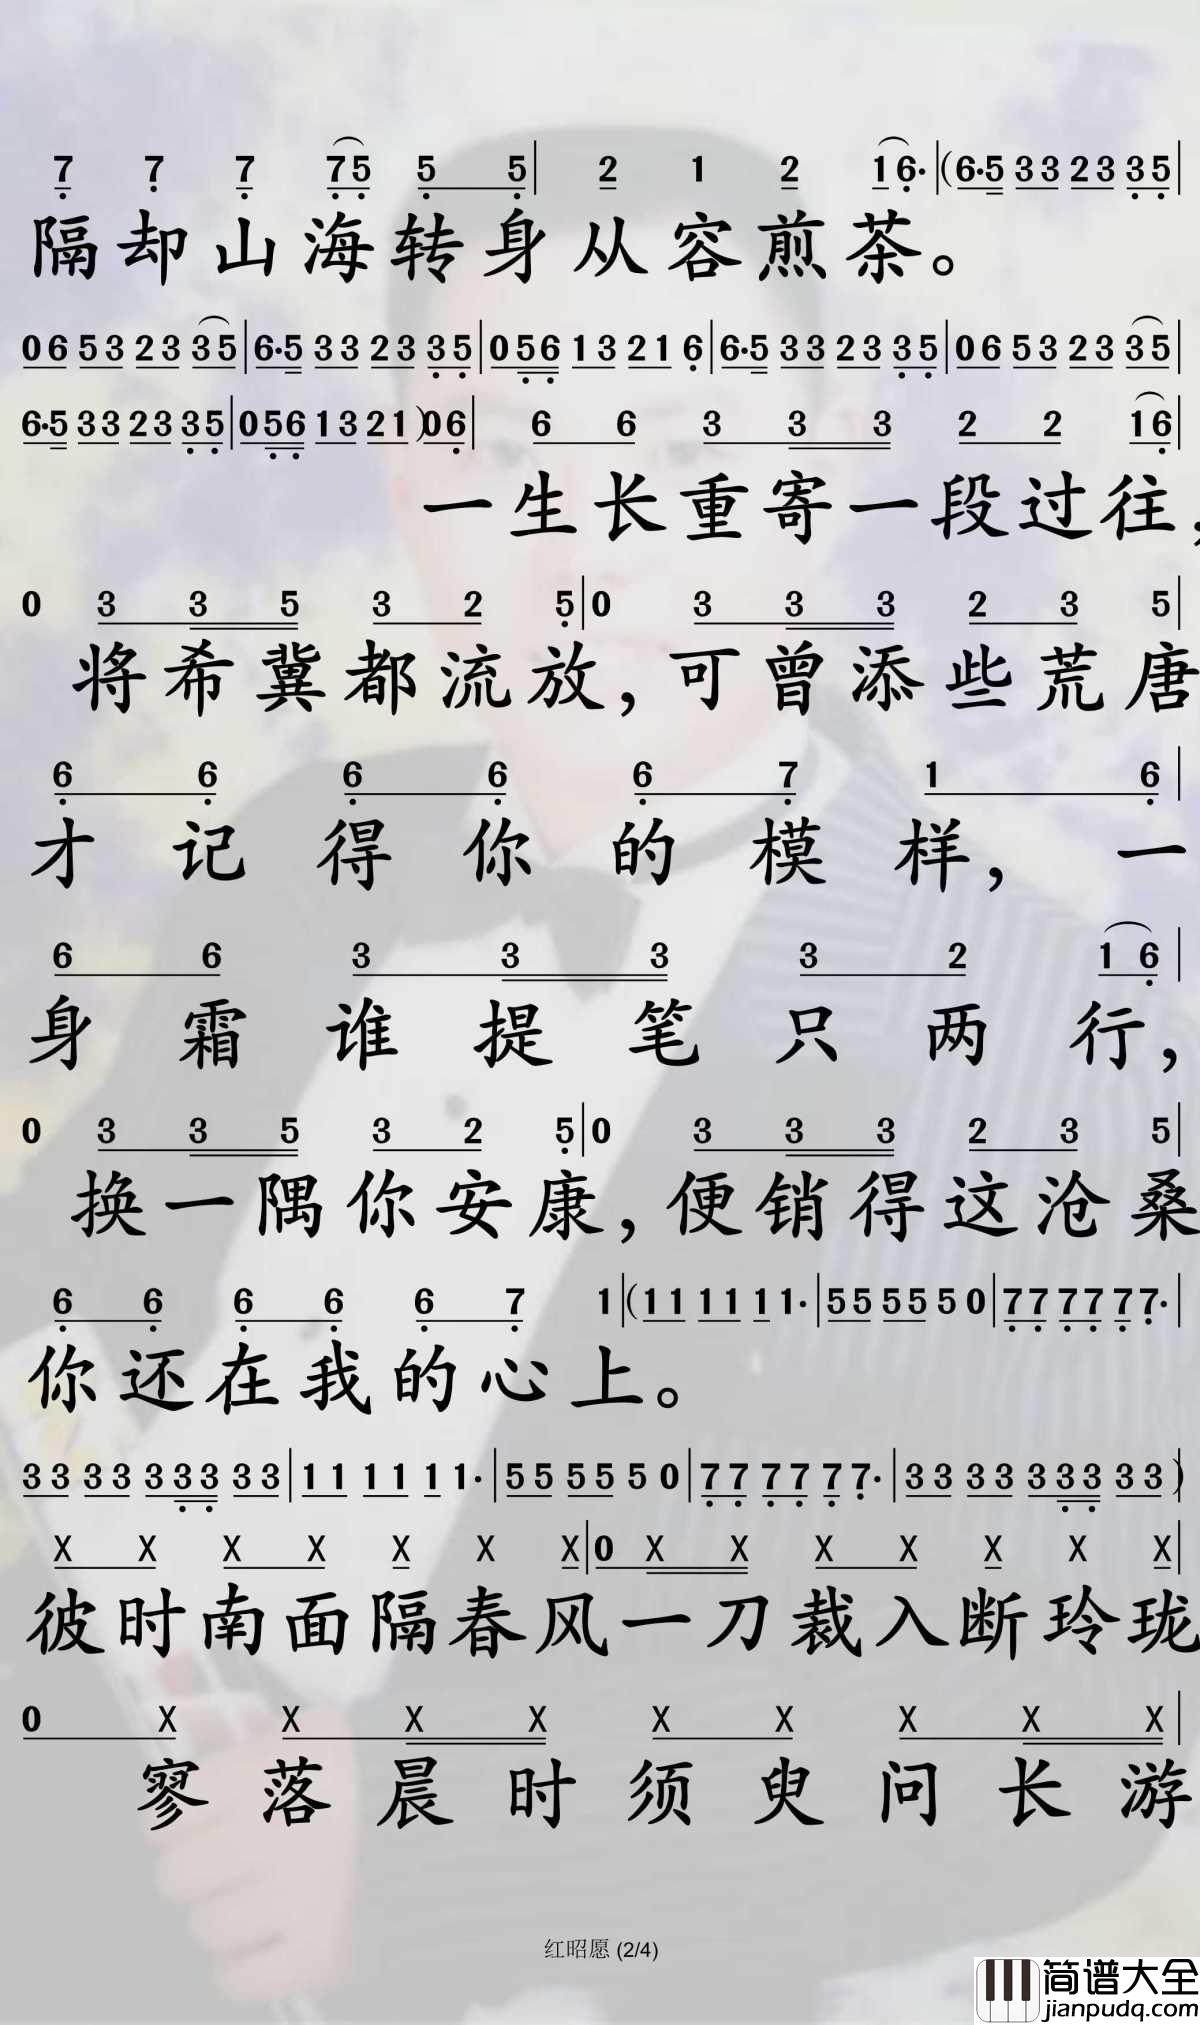 7 7 7 7 5 5 5| 2 1 2 1 6·|(6·5 3 3 2 3 3 5|
隔却山海转身从容煎茶。
0 6 5 3 2 3 3 5|6·5 3 3 2 3 3 5|0 5 6 1 3 2 1 6|6·5 3 3 2 3 3 5|0 6 5 3 2 3 3 5|
6·5 3 3 2 3 3 5|0 5 6 1 3 2 1)0 6| 6 6 3 3 3 2 2 1 6|
一生长重寄一段过往,
0 3 3 5 3 2 5|0 3 3 3 2 3 5|
将希冀都流放,可曾添些荒唐
6 6 6 6 6 7 1 6|
才记得你的模样,一
6 6 3 3 3 3 2 1 6|
身霜谁提笔只两行,
0 3 3 5 3 2 5|0 3 3 3 2 3 5|
换一隅你安康,便销得这沧桑
6 6 6 6 6 7 1|(1 1 1 1 1 1·|5 5 5 5 5 0|7 7 7 7 7 7·|
你还在我的心上。
3 3 3 3 3 3 3 3 3|1 1 1 1 1 1·|5 5 5 5 5 0|7 7 7 7 7 7·|3 3 3 3 3 3 3 3 3)|
X X X X X X X|0 X X X X X X X|
彼时南面隔春风一刀裁入断玲珑
0 X X X X X X X X X|
寥落晨时须臾问长游
红昭愿 (2/4)
简谱大全
jianpudq.com